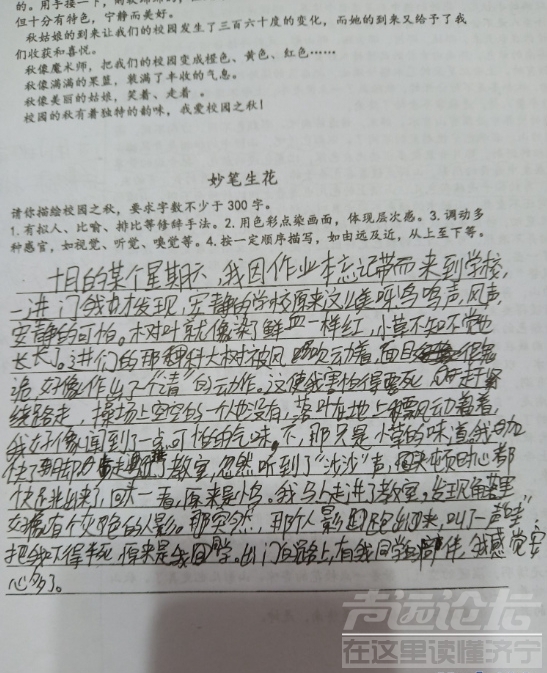 的。用手接一下，
但十分有特色，宁静而美好。
秋姑娘的到来让我们的校园发生了三百六十度的变化，而她的到来又给予了我
们收获和喜悦。
秋像魔术师，把我们的校园变成橙色、黄色、红色……
秋像满满的果篮，装满了丰收的气息。
秋像美丽的姑娘，笑着、走着 。
校园的秋有着独特的韵味，我爱校园之秋！
妙笔生花
请你描绘校园之秋，要求字数不少于 300 字。
1. 有拟人、比喻、排比等修辞手法。2. 用色彩点染画面，体现层次感。3. 调动多
种感官，如视觉、听觉、嗅觉等。4. 按一定顺序描写，如由远及近，从上至下等。
十月的某个星期六，我因作业本忘记带而来到学校，
一进门我才发现，安静的学校原来这么 鸟鸣声，风声，
安静的可怕。树叶就像染了鲜血一样红，小草不知不觉地
长长了。进门的那 大树被风 动着，面目
诡，好像作出了个"请"的动作。这使我害怕得要死，走
线路走，操场上空空的一个人也没有，落叶在地上飘动着，
我好像闻到了一点可怕的气味，不，那只是小草的味道。我加
快了脚步走进了教室，忽然听到了"沙沙"声，我顿时心都
快跳出来了，回头一看，原来是小鸟。我马上走进了教室。发现角落里
有个灰色的人影。那突然，那个人影 跑出来，叫了一声"哇"，
把我吓得半死，原来是我同学。出门回路上，有我同学的陪伴，我感觉安
心多了。
声远论坛
在这里读懂济宁